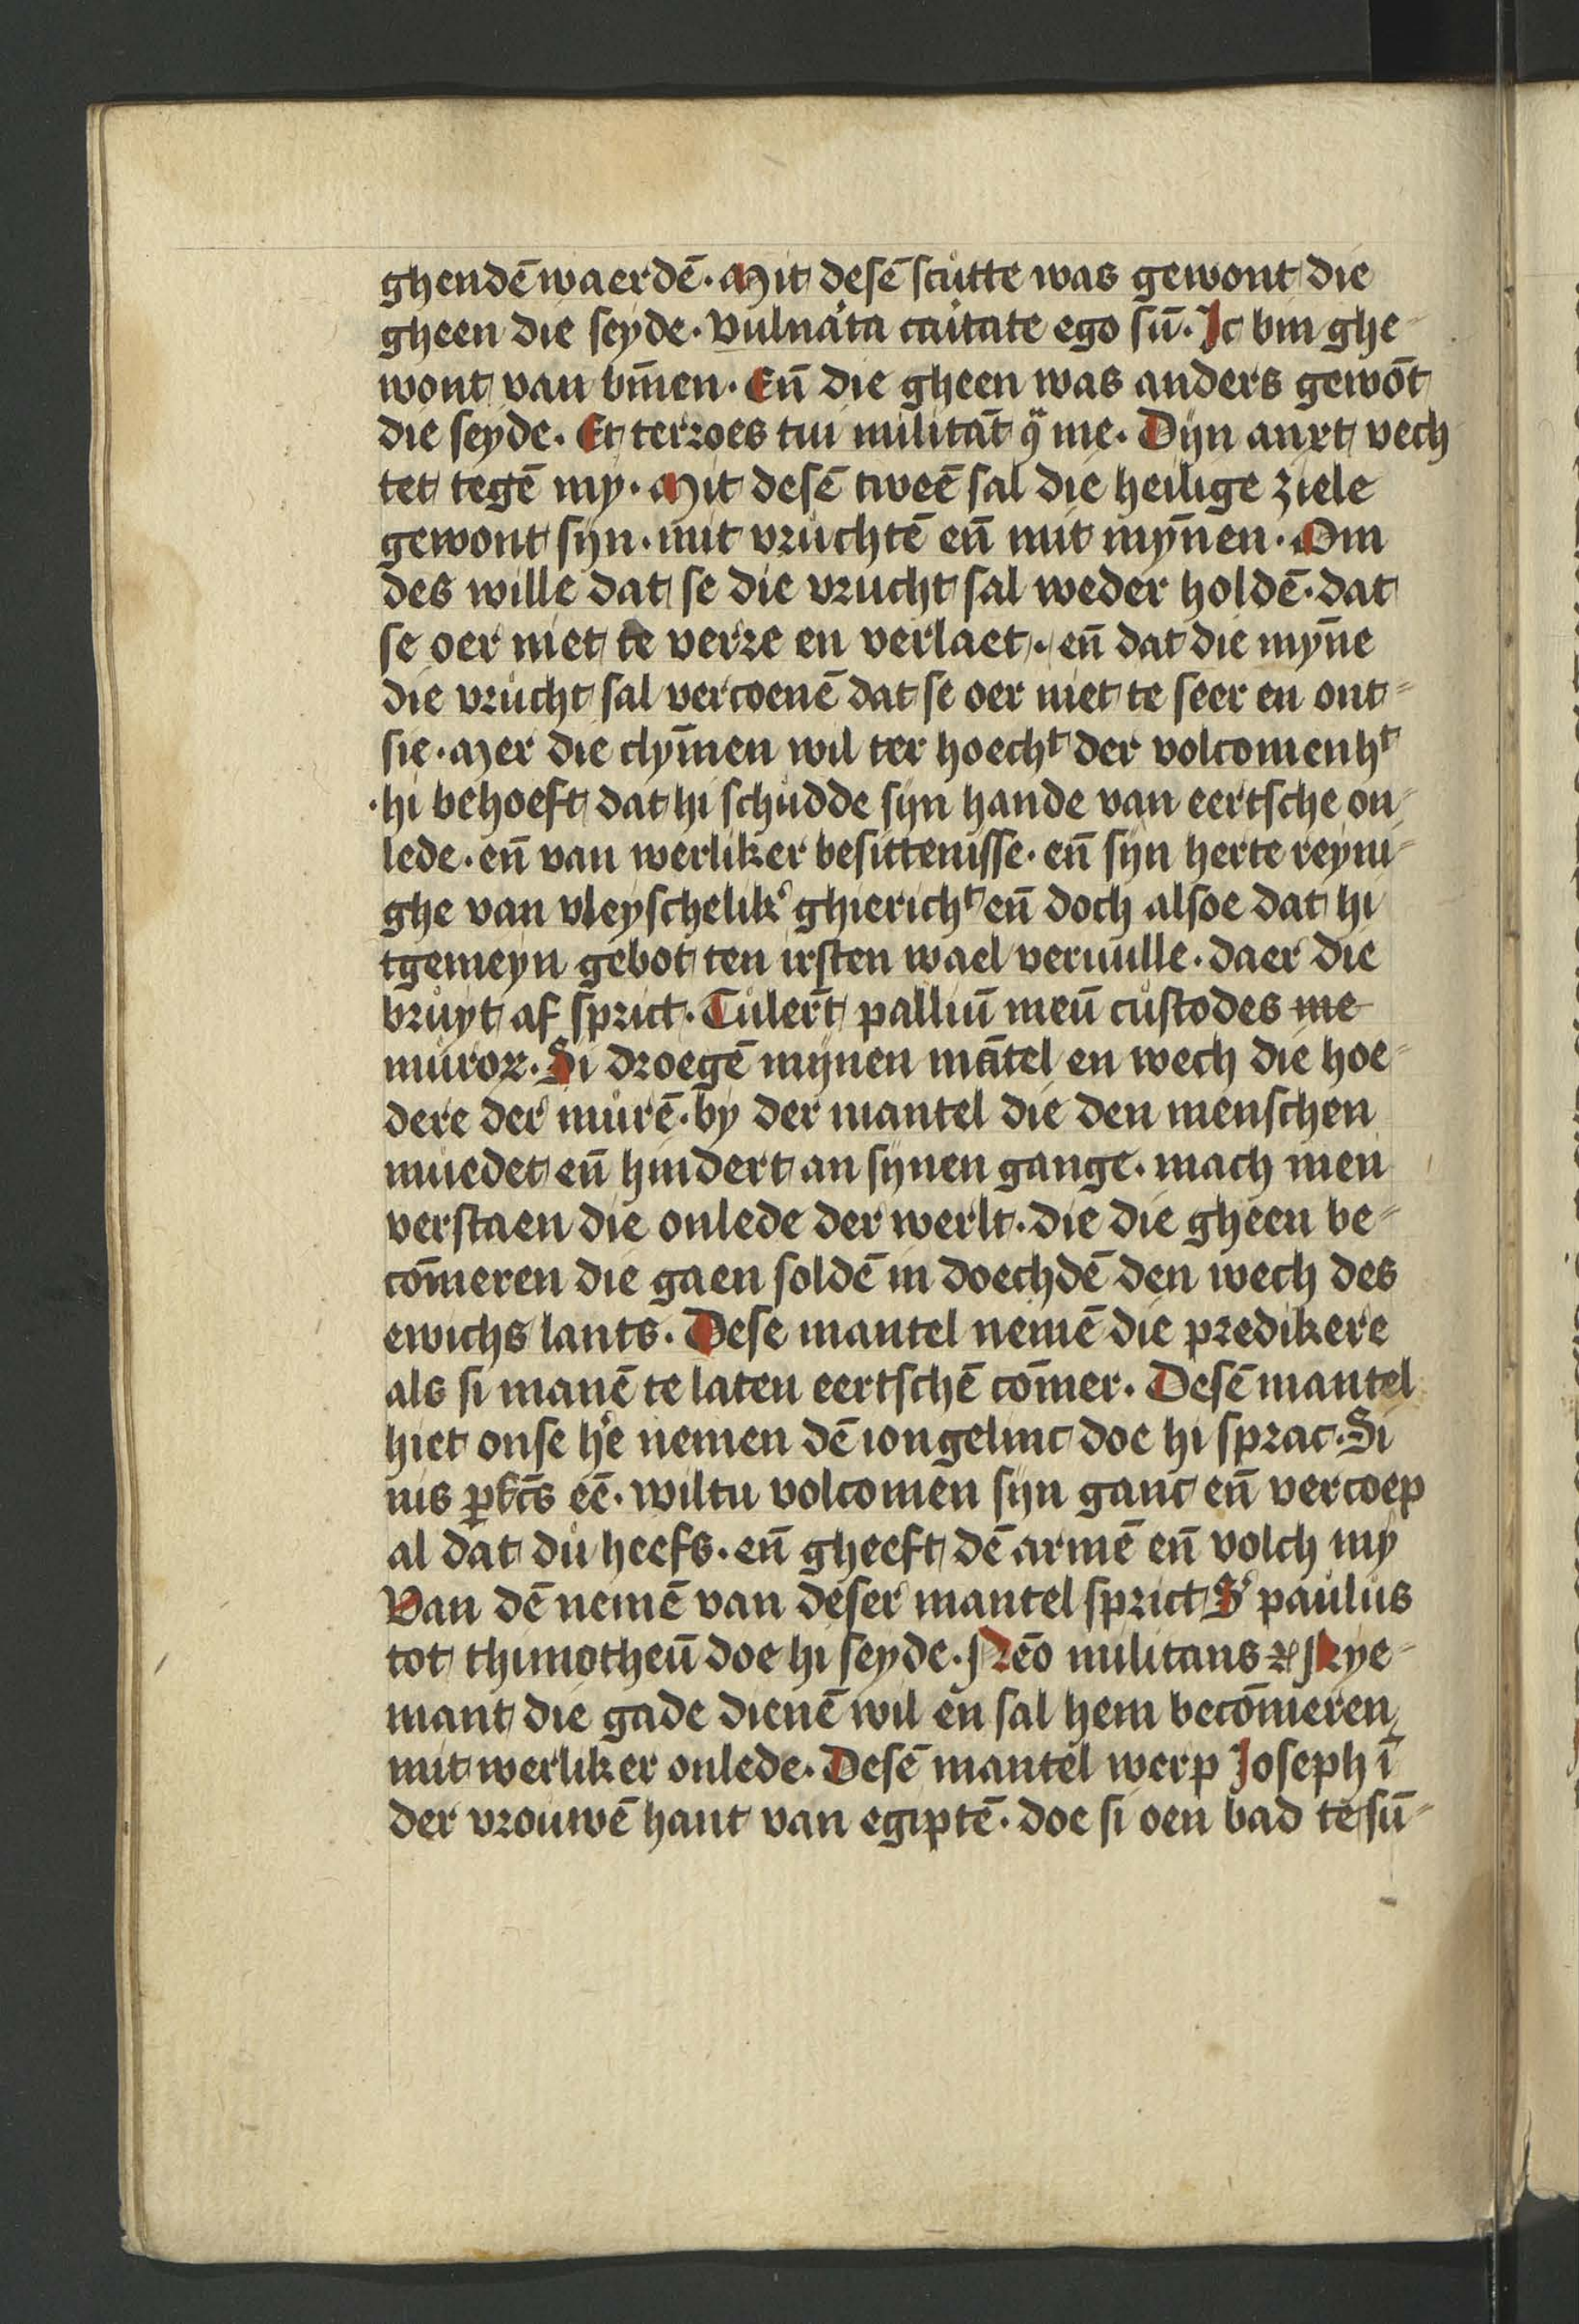 ghendē waerdē. Mit desē scutte was gewont die
gheen die seyde. Vulnata caitate ego sū. Ic bin ghe-
wont van bīnen. Eñ die gheen was anders gewōt
die seyde. Et terroes tui militāt ꝯ me. Dijn anxt vech
tet tegē my. Mit desē tweē sal die heilige ziele
gewont sijn. mit vruchtē eñ mit mȳnen. Om
des wille dat se die vrucht sal weder holdē. dat
se oer niet te verre en verlaet. eñ dat die mȳne
die vrucht sal vercoenē dat se oer niet te seer en ont-
sie. Mer die clȳmen wil ter hoechᵗ der volcomenhᵗ
hi behoeft dat hi schudde sijn hande van eertsche on-
lede. eñ van werliker besittenisse. eñ sijn herte reyni-
ghe van vleyschelik' ghierichᵗ eñ doch alsoe dat hi
tgemeyn gebot ten irsten wael veruulle. daer die
bruyt af sprict. Tulert̄ palliū meū custodes me
muroꝝ. Si droegē mijnen mātel en wech die hoe-
dere der murē. by der mantel die den menschen
muedet eñ hindert an sijnen gange. mach men
verstaen die onlede der werlt. die die gheen be-
cōmeren die gaen soldē in doechdē den wech des
ewichs lants. Dese mantel nemē die predikere
als si manē te laten eertschē cōmer. Desē mantel
hiet onse h'e nemen dē iongelinc doe hi sprac. Si
uis ꝑfcs̄ eē. wiltu volcomen sijn ganc eñ vercoep
al dat du heefs. eñ gheeft dē armē eñ volch my
Van dē nemē van deser mantel sprict S' paulus
tot thimotheū doe hi seyde. Nēo militans ⁊c Nye-
mant die gade dienē wil en sal hem becōmeren
mit werliker onlede. Desē mantel werp Joseph ī
der vrouwē hant van egiptē. doe si oen bad te sū-